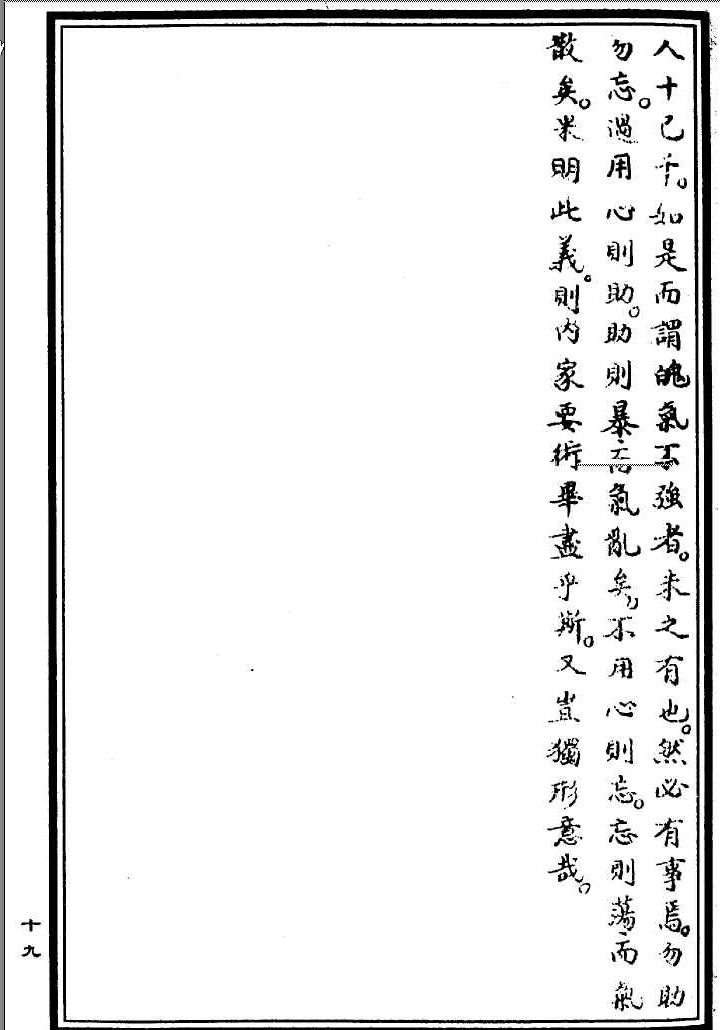 人十已千。如是而謂魄氣不強者。未之有也。然必有事焉。勿助
勿忘。過用心則助。助則暴而氣亂矣。不用心則忘。忘則蕩而氣
散矣。果明此義。則內家要術畢盡乎斯。又豈獨形意哉。
十九